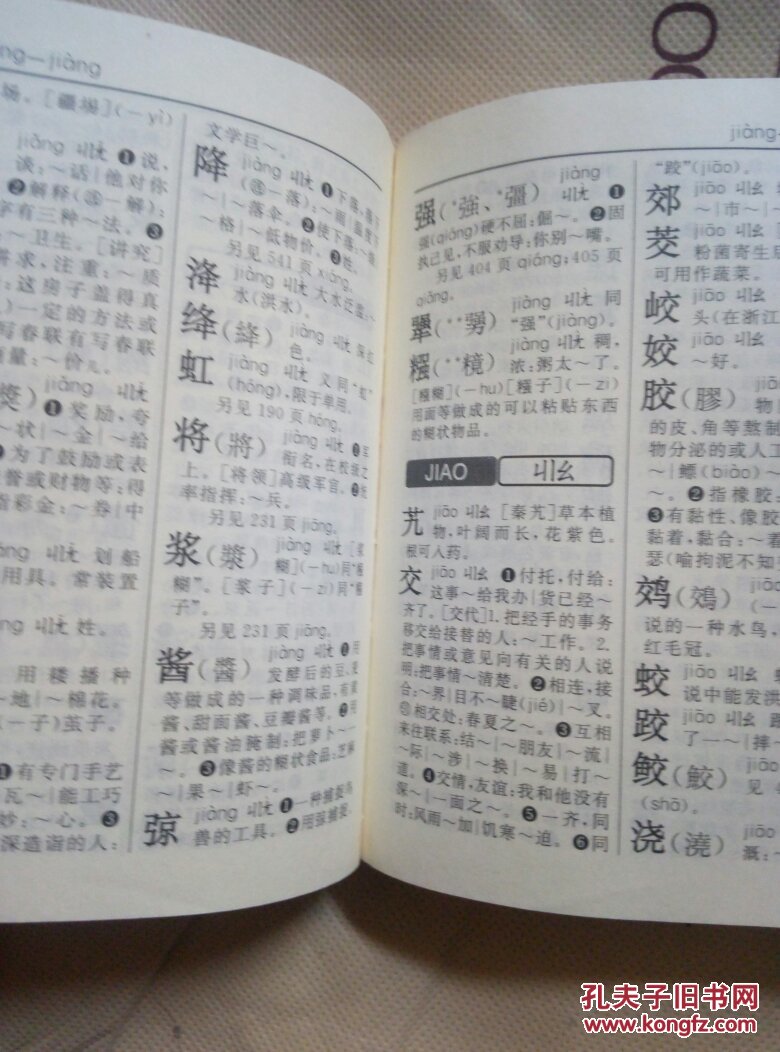 ng—jiàng
场。[疆場](－yì)
jiǎng ㄐㄧㄤ ❶说,
谈:～话|他对你
❷解释(㊥－解):
字有三种～法。❸
～卫生。[讲究]
求,注重:～质
:这房子盖得真
一定的方法或
写春联有写春联
商量:～价儿。
❶奖励,夸
～状|～金|～给
为了鼓励或表
誉或财物等:得
彩金:～券|中
划船
用具。常装置
jiǎng ㄐㄧㄤ 姓。
用耧播种
～地|～棉花。
(－子)茧子。
❶有专门手艺
瓦～|能工巧
妙:～心。❸
深造诣的人:
文学巨～。
降 jiàng ㄐㄧㄤ ❶下落,落下
(㊥－落):～雨|温度下
～|～落伞。❷使下落:～级|
～格|～低物价。❸姓。
另见541页 xiáng。
洚 jiàng ㄐㄧㄤ 大水泛滥:～
水(洪水)。
绛(絳) jiàng ㄐㄧㄤ 深红
色。
虹 jiàng ㄐㄧㄤ 义同“虹”
(hóng),限于单用。
另见190页 hóng。
将(將) jiàng ㄐㄧㄤ ❶军
衔名,在校级之
上。[将领]高级军官。❷统
率指挥:～兵。
另见231页 jiāng。
浆(漿) jiàng ㄐㄧㄤ [浆
糊](－hu)同“糨
糊”。[浆子](－zi)同“糨
子”。
另见231页 jiāng。
酱(醬) jiàng ㄐㄧㄤ ❶用
发酵后的豆、麦
等做成的一种调味品,有黄
酱、甜面酱、豆瓣酱等。❷用
酱或酱油腌制:把萝卜～一～。
❸像酱的糊状食品:芝麻
～|果～|虾～。
弶 jiàng ㄐㄧㄤ ❶一种捕捉鸟
兽的工具。❷用弶捕捉。
jiàng-
强(*強、*彊) jiàng
ㄐㄧㄤ ❶
强(qiáng)硬不屈:倔～。❷固
执己见,不服劝导:你别～嘴。
另见404页 qiáng;405页
qiǎng。
犟(**勥) jiàng ㄐㄧㄤ 同
“强”(jiàng)。
糨(**糡) jiàng ㄐㄧㄤ 稠,
浓:粥太～了。
[糨糊](－hu)[糨子](－zi)
用面等做成的可以粘贴东西
的糊状物品。
JIAO ㄐㄧㄠ
艽 jiāo ㄐㄧㄠ [秦艽]草本植
物,叶阔而长,花紫色。
根可入药。
交 jiāo ㄐㄧㄠ ❶付托,付给:
这事～给我办|货已经～
齐了。[交代]1.把经手的事务
移交给接替的人:～工作。2.
把事情或意见向有关的人说
明:把事情～清楚。❷相连,接
合:～界|目不～睫(jié)|～叉。
㊢相交处:春夏之～。❸互相
来往联系:结～|～朋友|～流|
～际|～涉|～换|～易|打～
道。❹交情,友谊:我和他没有
深～|一面之～。❺一齐,同
时:风雨～加|饥寒～迫。❻同
“跤”(jiāo)。
郊 jiāo ㄐㄧㄠ
～|市～|
茭 jiāo ㄐㄧㄠ
粉菌寄生后
可用作蔬菜。
峧 jiāo ㄐㄧㄠ
头(在浙江
姣 jiāo ㄐㄧㄠ
～好。
胶(膠) jiāo
物
的皮、角等熬制
物分泌的或人工
～|鳔(biào)～
～。❷指橡胶:
❸有黏性、像胶
黏着,黏合:～着
瑟(喻拘泥不知
鹪(鵁) jiāo
(－
说的一种水鸟,
红毛冠。
蛟 jiāo ㄐㄧㄠ
说中能发洪
跤 jiāo ㄐㄧㄠ 跟
了一～|摔～
鲛(鮫) jiāo
见4
(shā)。
浇(澆) jiāo
溉:～
孔夫子旧书网
www.kongfz.com